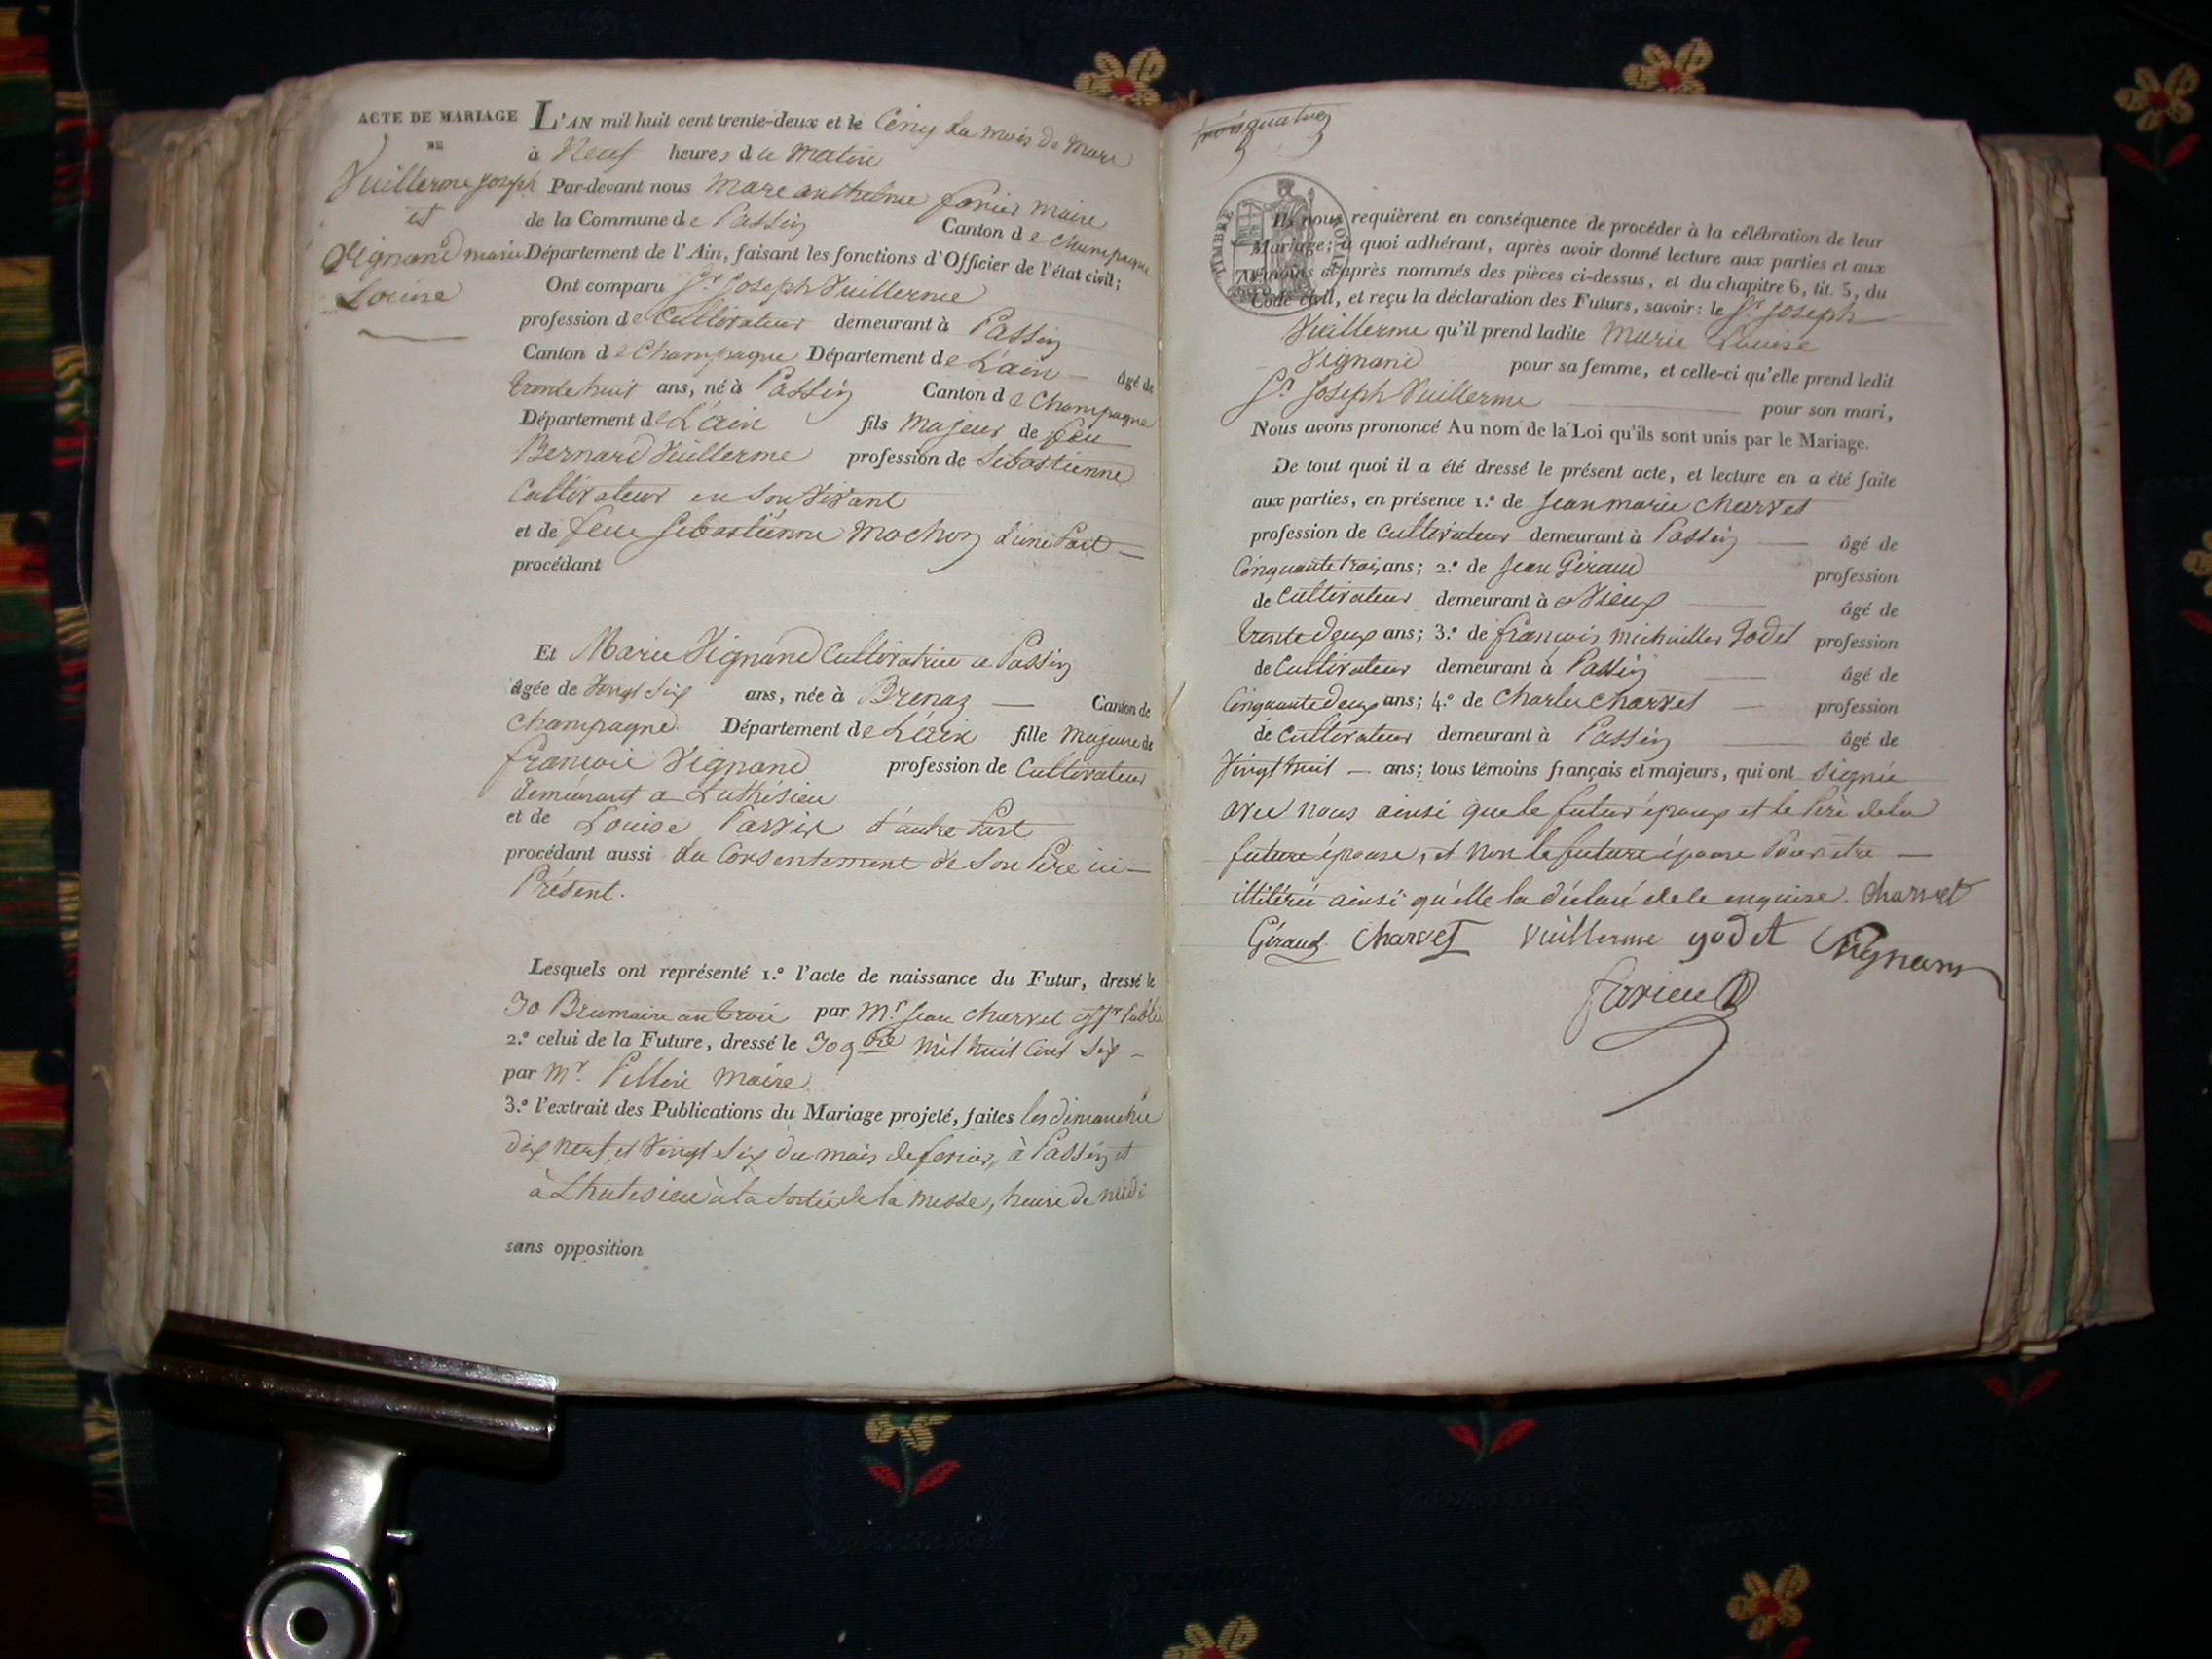 ACTE DE MARIAGE
DE
Vuillerme joseph
et
Vignand marie
Louise
L'AN mil huit cent trente-deux et le Cinq du mois de mars
à Neuf heures du matin
Par-devant nous marc anthelme favier maire
de la Commune de Passin Canton de champagne
Département de l'Ain, faisant les fonctions d'Officier de l'état civil;
Ont comparu Sr. Joseph Vuillerme
profession de Cultivateur demeurant à Passin
Canton de Champagne Département de L'ain — âgé de
trente huit ans, né à Passin Canton de Champagne
Département de L'ain fils majeur de feu
Bernard Vuillerme profession de Sebastienne
Cultivateur en son Vivant
et de feue Sebastienne Mochon d'une Part —
procédant
Et Marie Vignand Cultivatrice a Passin
âgée de Vingt Six ans, née à Brenaz — Canton de
champagne Département de L'ain fille majeure de
francois Vignand profession de Cultivateur
demeurant a Luthesieu
et de Louise Parvix d'autre Part
procédant aussi du Consentement de Son Père ici —
Présent.
Lesquels ont représenté 1.º l'acte de naissance du Futur, dressé le
30 Brumaire an trois par Mr. Jean charvet offr Public
2.º celui de la Future, dressé le 30 9bre mil huit Cent Six —
par Mr. Maire
3.º l'extrait des Publications du Mariage projeté, faites les dimanche
dix neuf et Vingt Six du mois de fevrier, à Passin et
à Lhutesieu à la Sortie de la messe, heure de midi
sans opposition
trois quatre
TIMBRE ROYAL
Ils nous requièrent en conséquence de procéder à la célébration de leur
Mariage; à quoi adhérant, après avoir donné lecture aux parties et aux
Témoins ci-après nommés des pièces ci-dessus, et du chapitre 6, tit. 5, du
Code civil, et reçu la déclaration des Futurs, savoir: le Sr Joseph
Vuillerme qu'il prend ladite Marie Louise
Vignand pour sa femme, et celle-ci qu'elle prend ledit
Sr Joseph Vuillerme — pour son mari,
Nous avons prononcé Au nom de la Loi qu'ils sont unis par le Mariage.
De tout quoi il a été dressé le présent acte, et lecture en a été faite
aux parties, en présence 1.º de Jean marie charvet
profession de Cultivateur demeurant à Passin — âgé de
Cinquante trois ans; 2.º de Jean Géraud profession
de Cultivateur demeurant à Vieux — âgé de
trente deux ans; 3.º de françois michaillet Godet profession
de Cultivateur demeurant à Passin — âgé de
Cinquante deux ans; 4.º de Charle charvet — profession
de Cultivateur demeurant à Passin — âgé de
Vingt huit — ans; tous témoins français et majeurs, qui ont Signée
avec nous ainsi que le futur époux et le Père de la
future épouse, et non la future épouse Pour etre —
illitérée ainsi qu'elle la déclaré de le enquise. Charvet
Géraud Charvet Vuillerme godet Vignand
favier